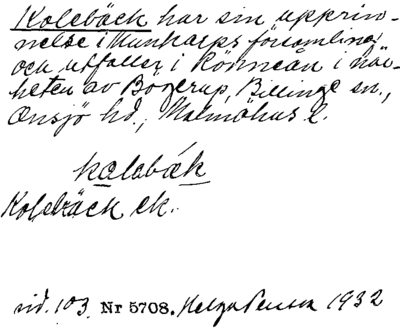 Kolebäck har sin upprin-
nelse i Munkarps församling
och utfaller i Rönneån i när-
heten av Bogerup, Billinge sn.,
Onsjö hd., Malmöhus l.
kalabäk
Kolebäck ek.
sid. 103. Nr 5708. Helga Persson 1932